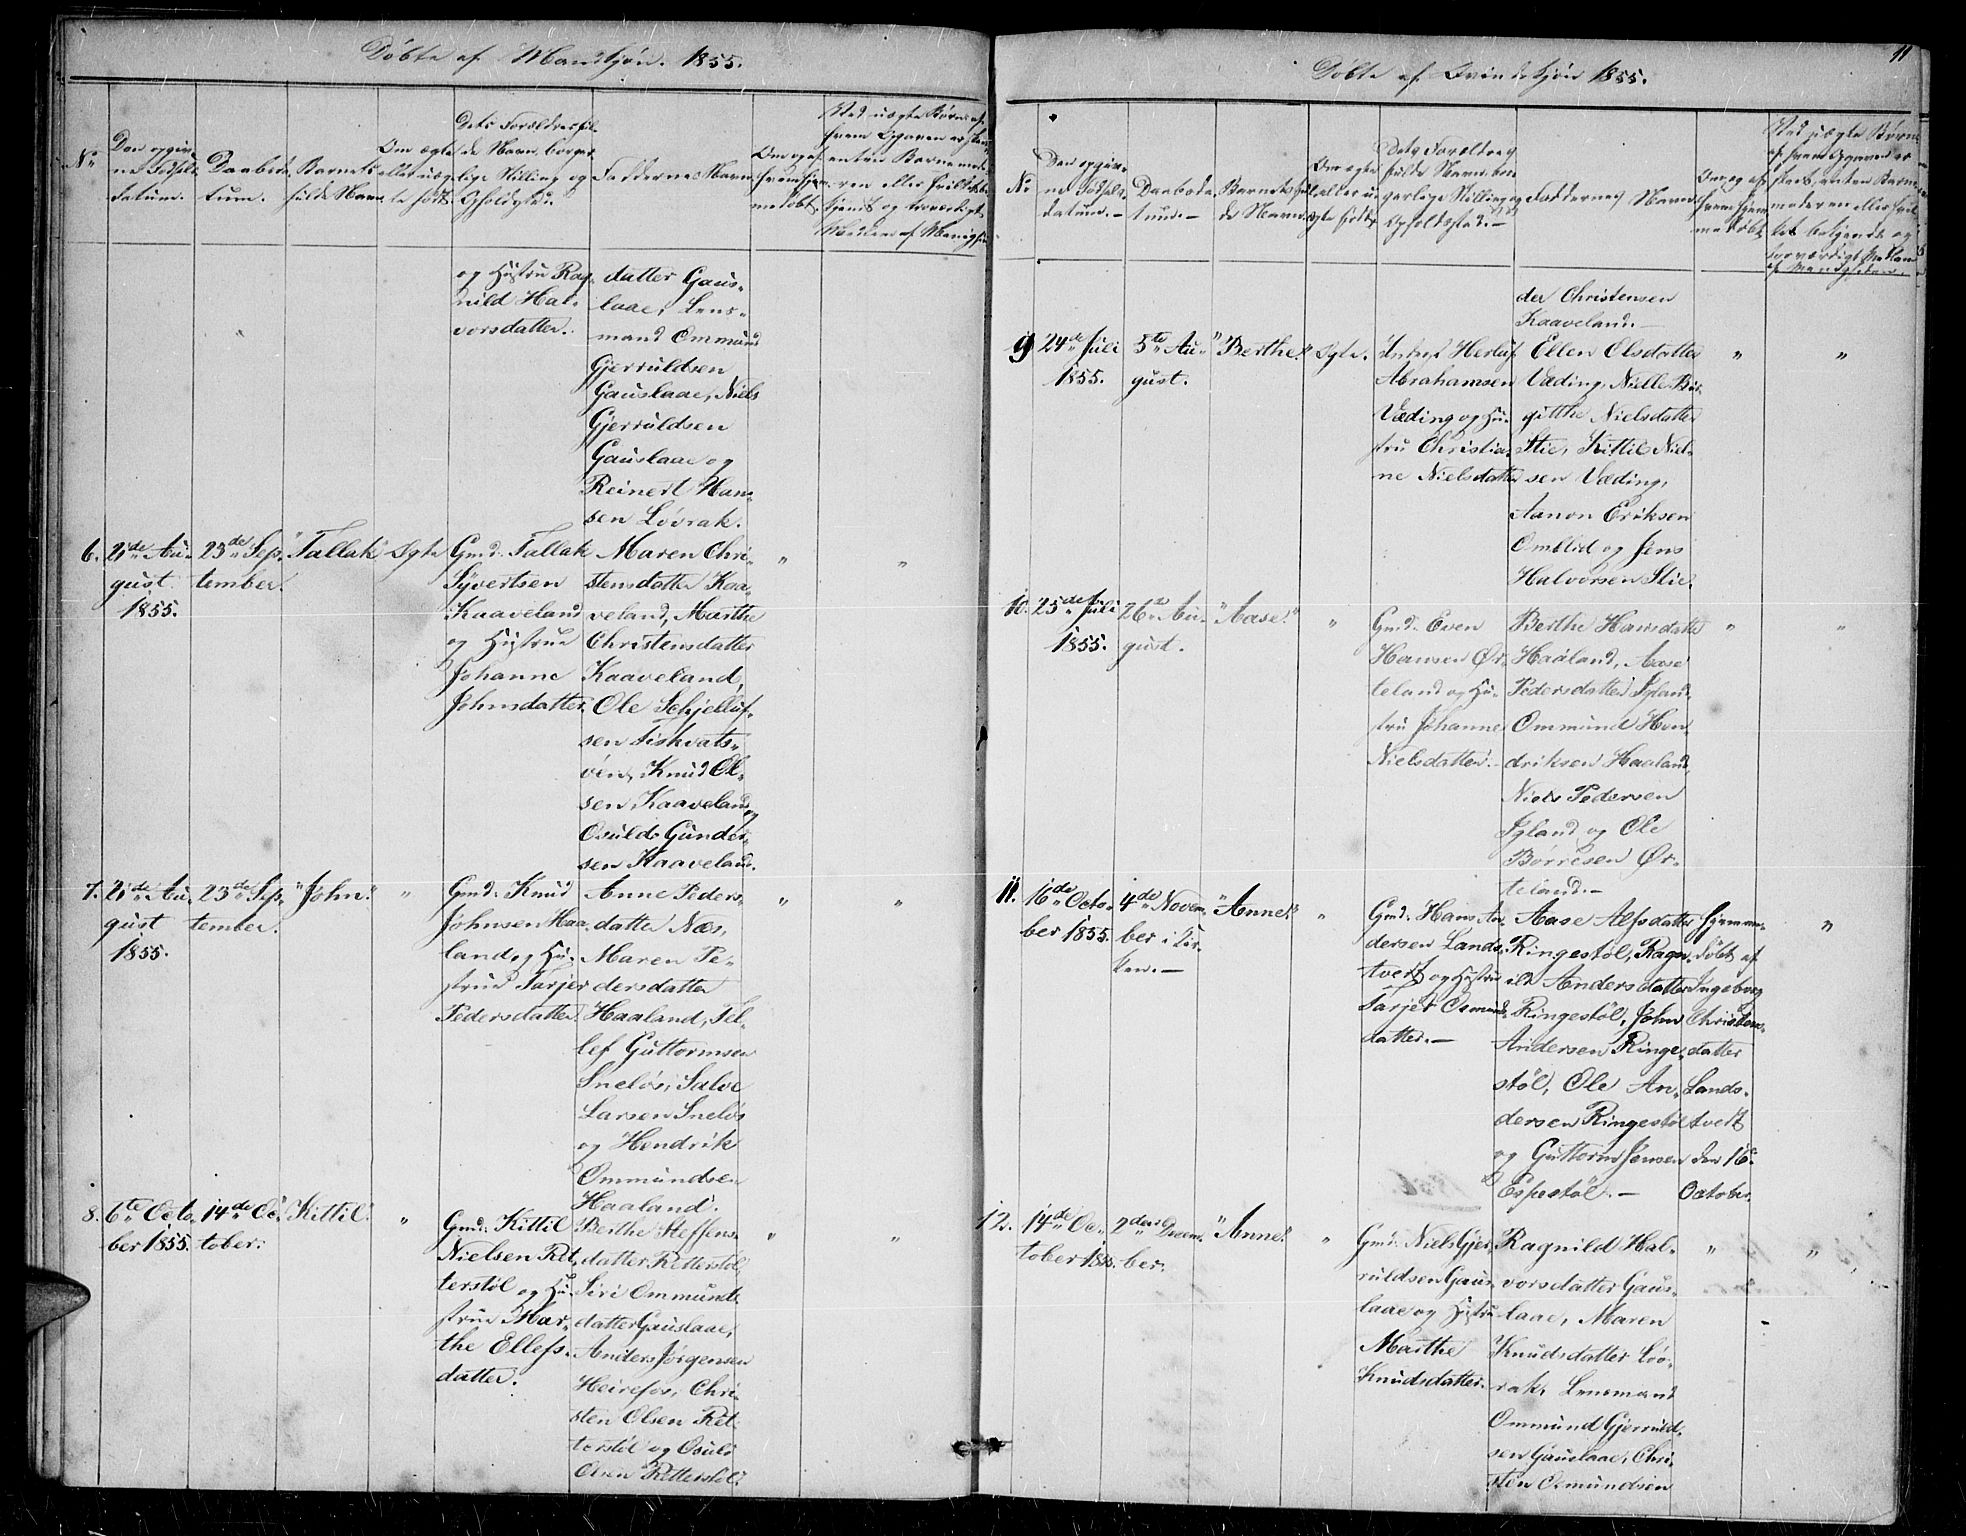 Döbte af Mandkjön. 1855.
No
Den opgiv-
ne Födsels-
datum.
Daabsda-
tum.
Barnets
fulde Navn
Om ægte
eller uæg-
te född.
Dets Forældres ful-
de Navn, borger-
lige Stilling og
Opholdsted.
Faddernes Navn.
Om og af
hvem hjem-
medöbt.
og Hustru Rag-
nild Hal-
vorsdatter.
datter Gaus-
laae, Lens-
mand Ommund
Gjerruldsen
Gauslaae, Niels
Gjerruldsen
Gauslaae og
Reinert Han-
sen Lövrak.
6.
21de Au-
gust
1855.
23de Sep-
tember.
"Tallak"
Ægte
Gmd. Tallak
Syvertsen
Kaaveland
og Hustrue
Johanne
Johnsdatter.
Maren Chri-
stensdatter Kaa-
veland, Marthe
Christensdatter
Kaaveland,
Ole Schjelluf-
sen Fiskvats-
vön, Knud Ol-
sen Kaaveland og
Osuld Gunder-
sen Kaaveland.
"
"
7.
21de Au-
gust
1855.
23de Sep-
tember.
"John."
"
Gmd. Knud
Johnsen Haa-
land og Hu-
strue Tarjer
Pedersdatter.
Anne Peders-
datter Næs,
Maren Pe-
dersdatter
Haaland, Tel-
lef Guttormsen
Snelös, Salve
Larsen Snelös
og Hendrik
Ommundsen
Haaland.
"
"
8.
6te Octo-
ber 1855.
14de Oc-
tober.
Kittil.
"
Gmd. Kittil
Nielsen Ret-
terstöl og Hu-
strue Mar-
the Ellefs-
datter.
Berthe Steffens-
datter Retterstöl,
Siri Ommunds-
datter Gauslaae,
Anders Jörgensen
Heirefos, Chri-
sten Olsen Ret-
terstöl og Osuld
Olsen Retterstöl.
"
"
11
Döbte af Qvindekjön 1855.
No
Den opgiv-
ne Födsels-
datum.
Daabsda-
tum.
Barnets ful-
de Navn.
Om ægte
eller u-
ægte född.
Dets Forældres
fulde Navn, bor-
gerlige Stilling og
Opholdsted.
Faddernes Navn.
Om og af
hvem hjem-
medöbt.
der Christensen
Kaaveland.
9
24de Juli
1855.
5te Au-
gust.
"Berthe."
Ægte.
Herluf
Abrahamsen
Væding og Hu-
stru Christia-
ne Nielsdatter
Ellen Olsdatter
Væding, Nille Bir-
githe Nielsdatter
Stie, Kittil Niel-
sen Væding,
Aanon Eriksen
Omblid og Jens
Halvorsen Stie.
"
"
10.
25de Juli
1855.
26de Au-
gust.
"Aase."
"
Gmd. Even
Hansen Ör-
teland og Hu-
stru Johanne
Nielsdatter.
Berthe Hansdatter
Haaland, Aase
Pedersdatter Igland,
Ommund Hen-
driksen Haaland,
Niels Pedersen
Igland og Ole
Börresen Ör-
teland.
"
"
11.
16de Octo-
ber 1855.
4de Novem-
ber i Kir-
ken.
"Anne."
"
Gmd. Hans An-
dersen Lands-
tvert og Hustrue
Tarjer Osmunds-
datter.
Aase Alfsdatter
Ringestöl, Ragn-
ild Andersdatter
Ringestöl, John
Andersen Ringe-
stöl, Ole An-
dersen Ringestöl
og Guttorm Jensen
Espestöl.
Hjemme-
döbt af
Ingeborg
Christens-
datter
Lands-
tvert
den 16de
October.
"
12.
14de Oc-
tober 1855.
2den Decem-
ber.
"Anne."
"
Gmd. Niels Gjer-
ruldsen Gaus-
laae og Hustru
Marthe
Knudsdatter.
Ragnild Hal-
vorsdatter Gaus-
laae, Maren
Knudsdatter Löv-
rak, Lensmand
Ommund Gjerruld-
sen Gauslaae, Chri-
sten Osmundsen
"
"